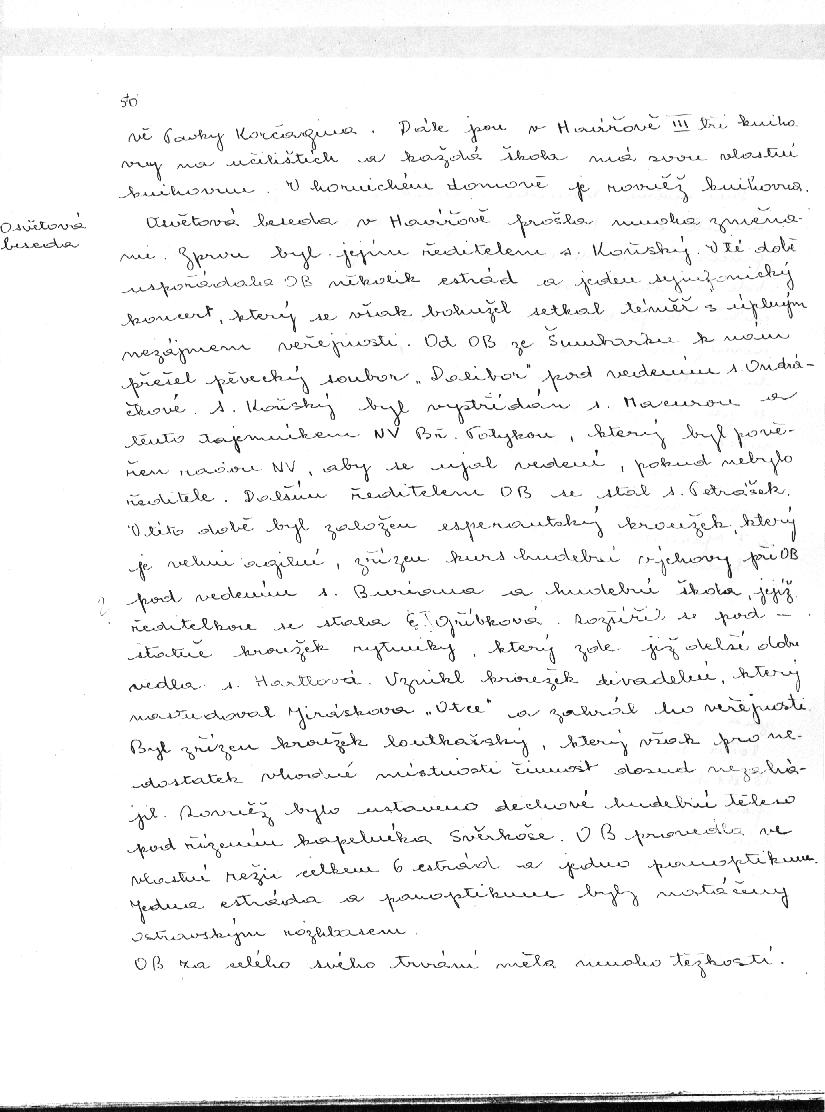 50
vě Pavky Korčagina. Dále jsou v Havířově III tři kniho
vny na učilištích a každá škola má svou vlastní
knihovnu. V hornickém domově je rovněž knihovna.
Osvětová
beseda
Osvětová beseda v Havířově prošla mnoha změna-
mi. Zprvu byl jejím ředitelem s. Kořský. V té době
uspořádala OB několik estrád a jeden symfonický
koncert, který se však bohužel setkal téměř s úplným
nezájmem veřejnosti. Od OB ze Šumbarku k nám
přešel pěvecký soubor "Dalibor" pod vedením s. Ondrá-
čkové. s. Kořský byl vystřídán s. Macurou a
tento tajemníkem NV Bř. Potykou, který byl pově-
řen radou NV, aby se ujal vedení, pokud nebylo
ředitele. Dalším ředitelem OB se stal s. Petrášek.
V této době byl založen esperantský kroužek, který
je velmi agilní, zřízen kurs hudební výchovy při OB
pod vedením s. Buriana a hudební škola, jejíž
ředitelkou se stala E. Gřibková. Rozšířil se pod-
statně kroužek rytmiky, který zde již delší dobu
vedla s. Hartlová. Vznikl kroužek divadelní, který
nastudoval Jiráskova "Otce" a zahrál ho veřejnosti.
Byl zřízen kroužek loutkařský, který však pro ne-
dostatek vhodné místnosti činnost dosud nezahá-
jil. Rovněž bylo ustaveno dechové hudební těleso
pod řízením kapelníka Svěrkoše. OB provedla ve
vlastní režii celkem 6 estrád a jedno panoptikum.
Jedna estráda a panoptikum byly natáčeny
ostravským rozhlasem.
OB za celého svého trvání měla mnoho těžkostí.